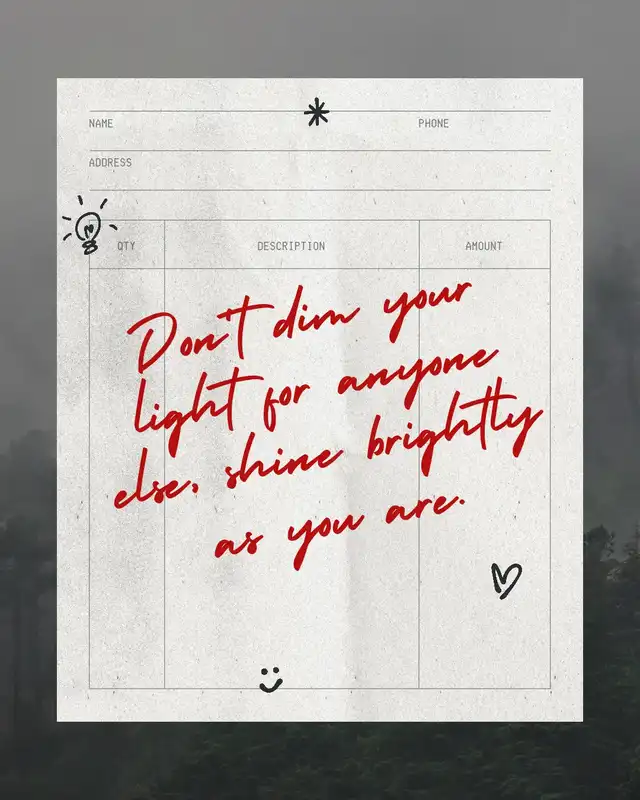 NAME PHONE
ADDRESS
QTY DESCRIPTION AMOUNT
Don't dim your
light for anyone
else, shine brightly
as you are.